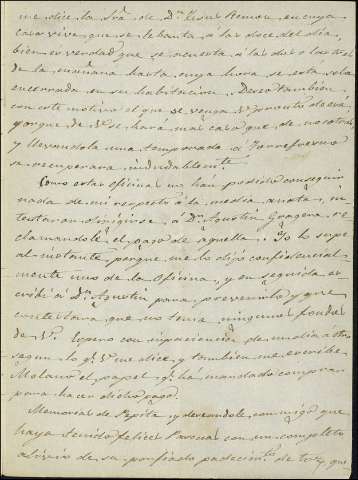 me dice la Sra. de Dn. José Ramon, en cuya
casa vive, que se lebanta a las doce del dia,
bien es verdad que se acuesta a las dos o las tres
de la mañana hasta cuya hora se está sola
encerrada en su habitacion. Deseo tambien
con este motivo el que se venga
porque de V. se hará mas caso que de nosotros
y llevandola una temporada a
se recuperará indudablemente.
Como estas oficinas no han podido conseguir
nada de mi respecto á la media anata, in-
tentaron dirigirse á Dn. Agustin Gragera re-
clamandole el pago de aquella. Yo lo supe
al instante, porque me lo dijo confidencial-
mente uno de la Oficina, y en seguida es-
cribí á Dn. Agustin para prevenirlo y que
contestara que no tenia ningunos fondos
de V. Espero con impaciencia de un dia á otro
segun lo q. V. me dice, y tambien me escribe
Molano el papel q. há mandado comprar
para hacer dicho pago.
Memorias de Pepita y deseandole conmigo que
haya tenido felices Pascuas con un completo
alivio de su porfiado padecimto. de tos, que